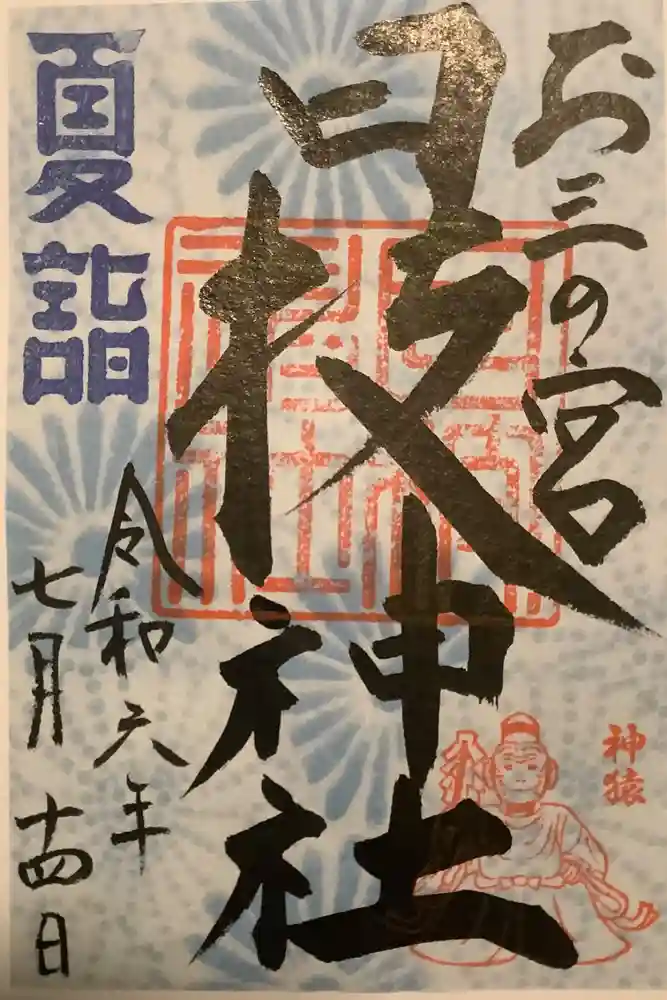 お三の宮
日枝神社
神猿
夏詣
令和六年
七月十四日